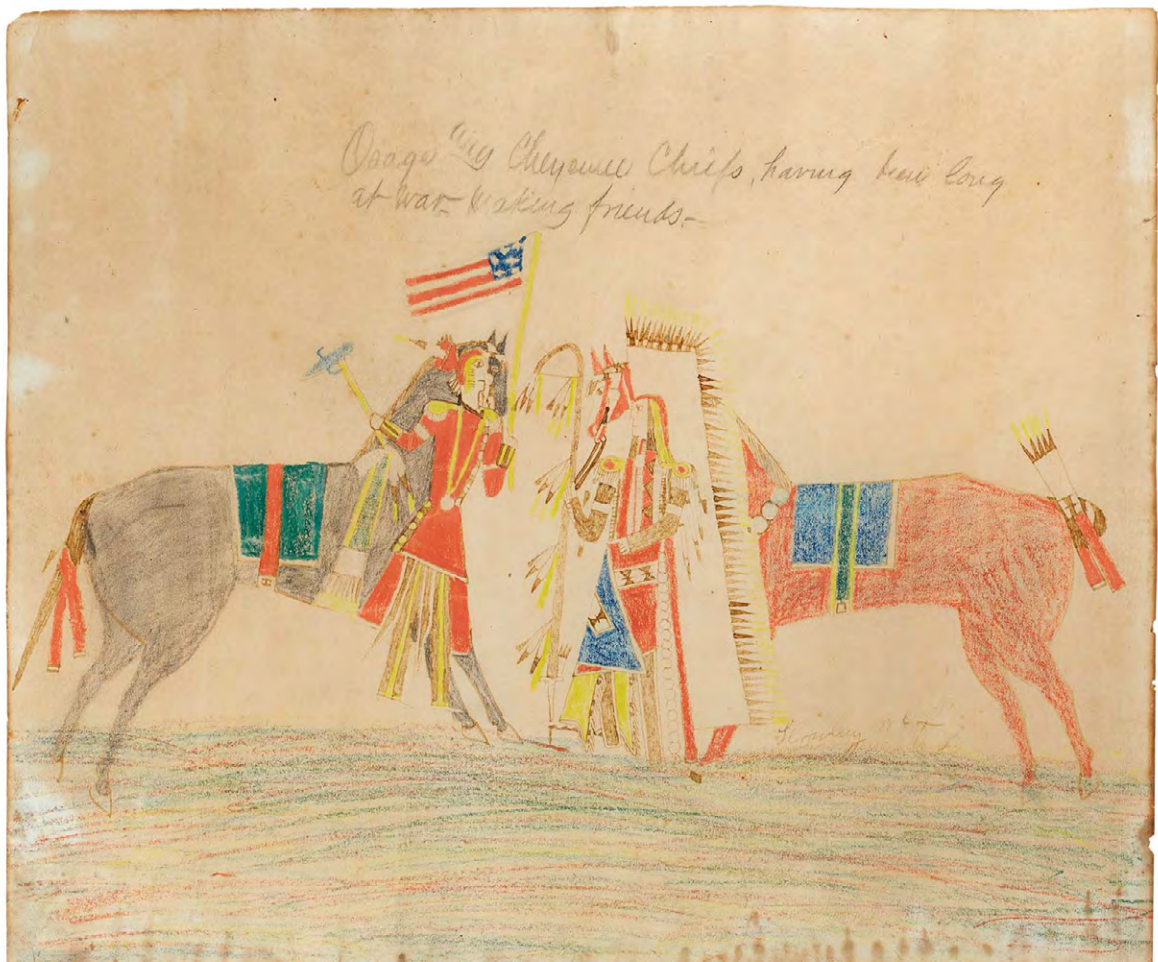 Osage and Cheyenne Chiefs, having been long
at war making friends-